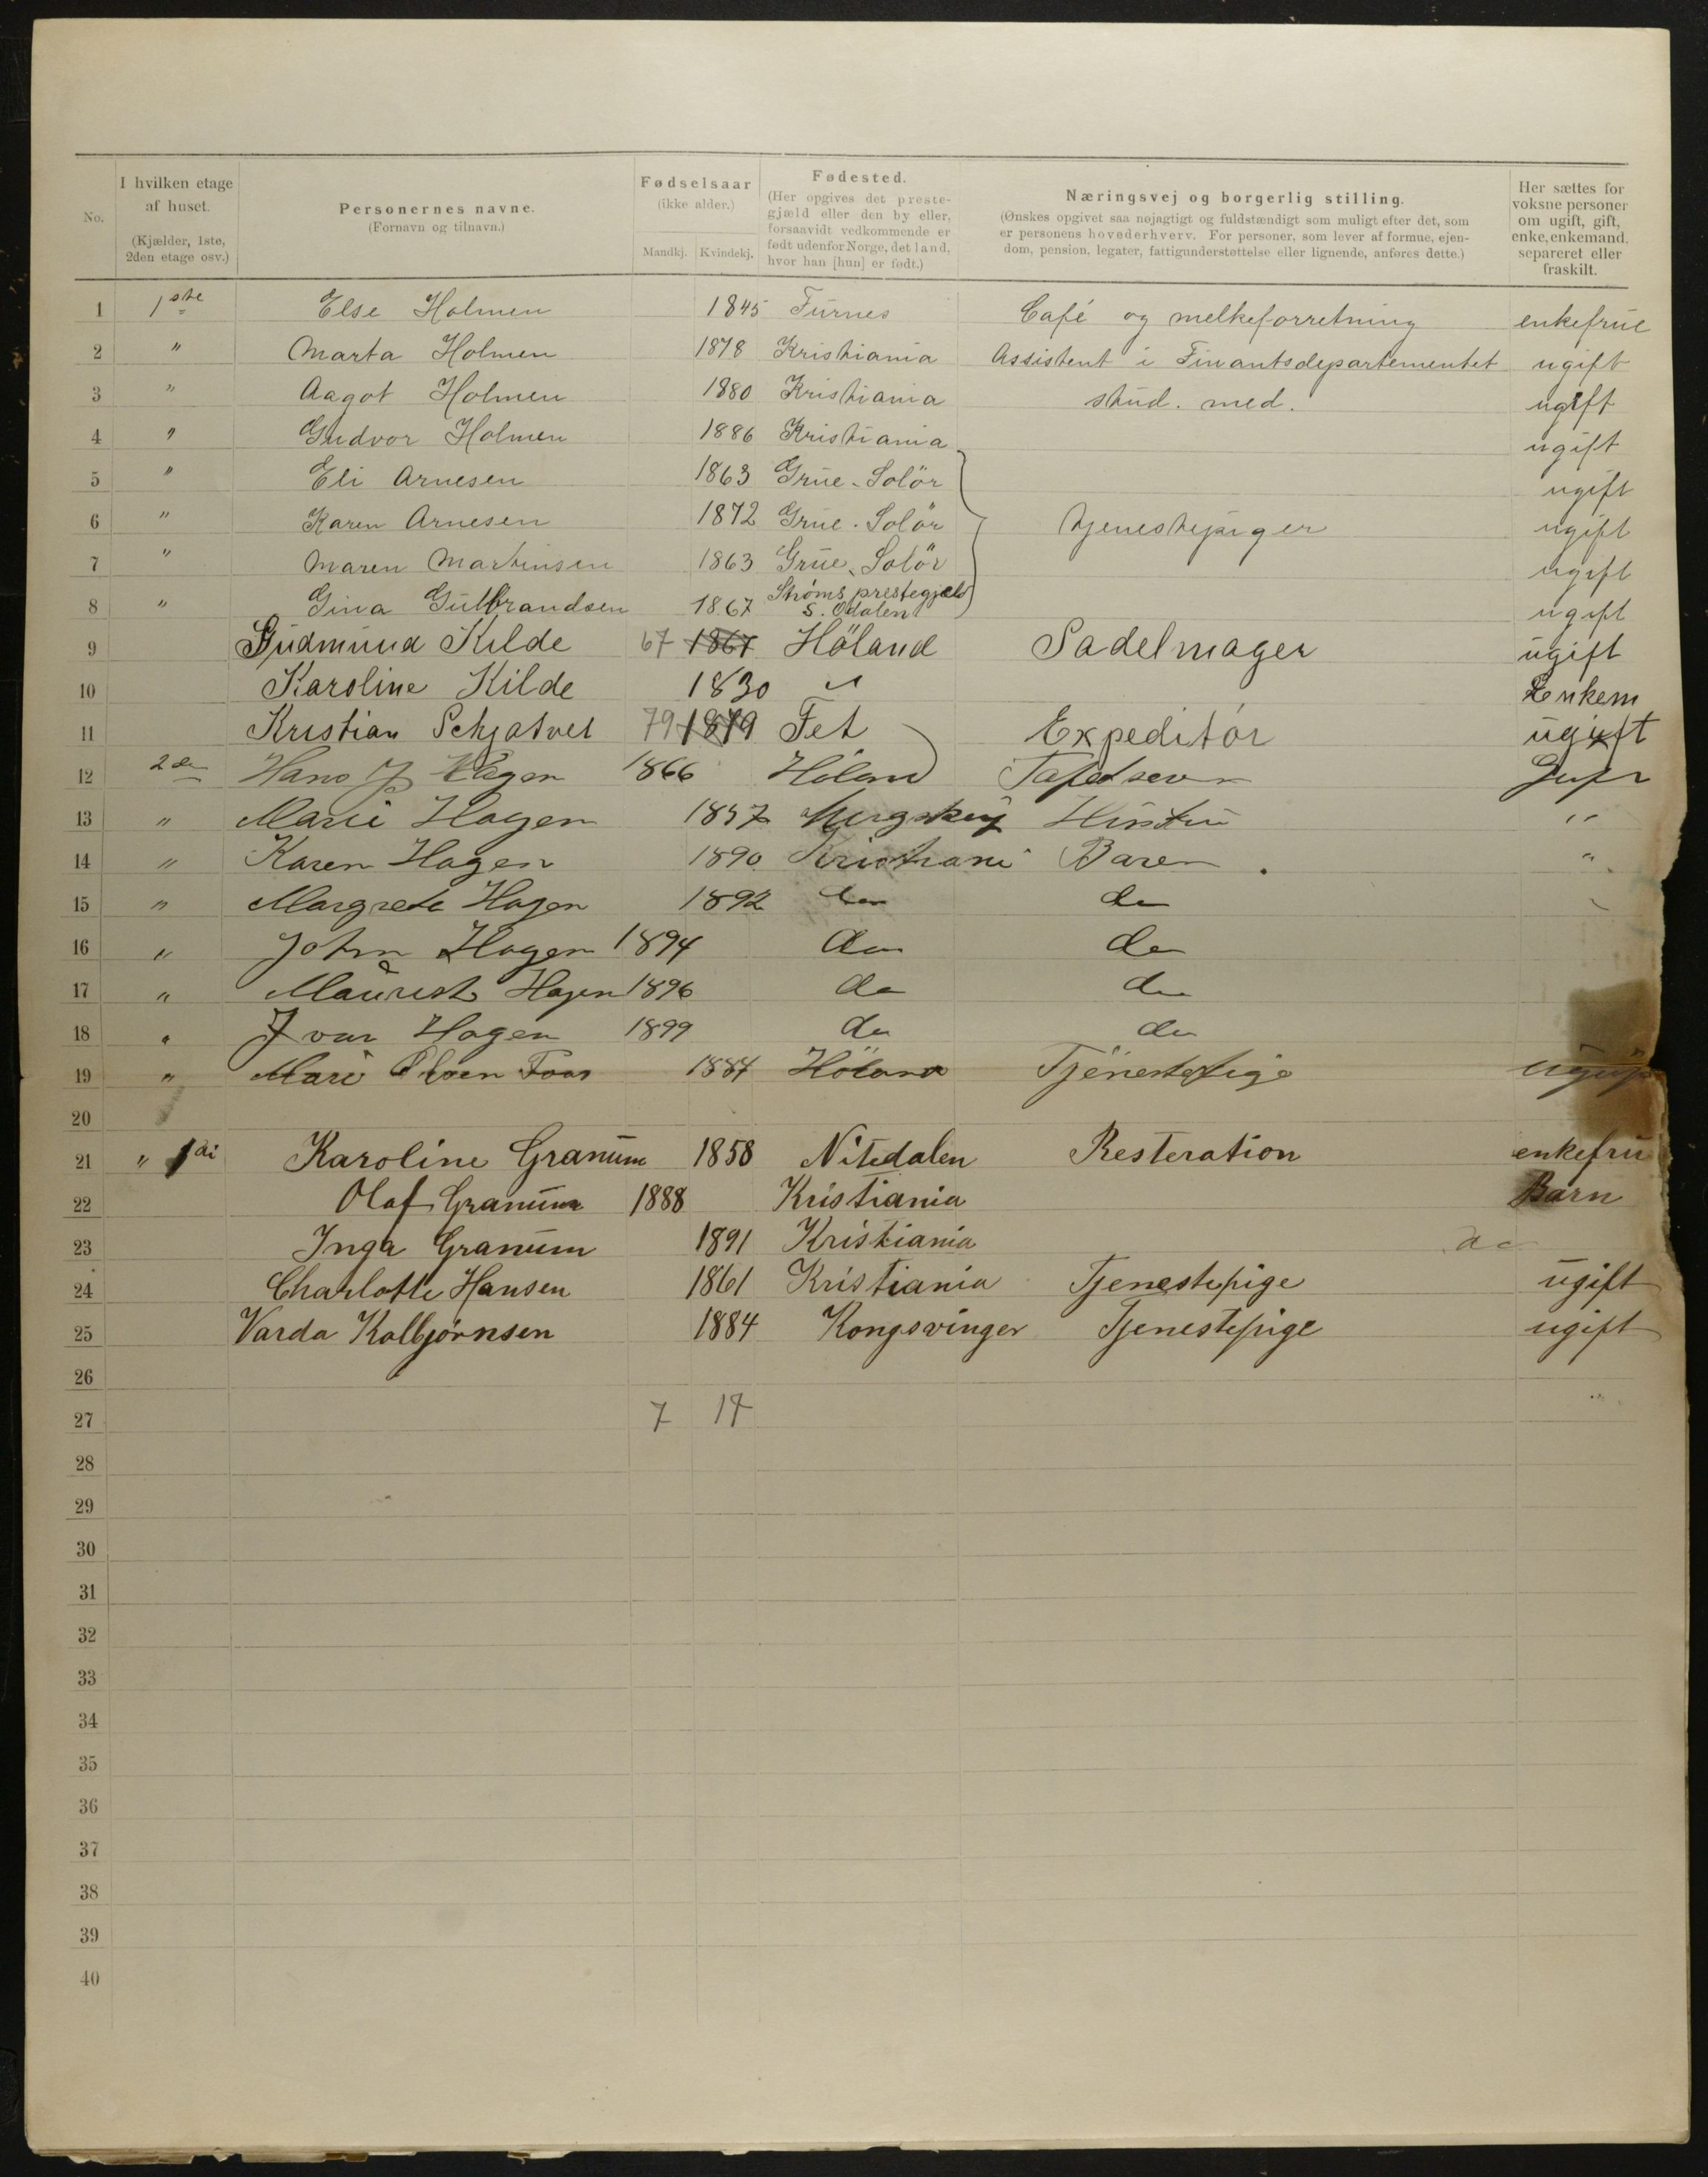 No.
I hvilken etage
af huset.
(Kjælder, 1ste,
2den etage osv.)
Personernes navne.
(Fornavn og tilnavn.)
Fødselsaar
(ikke alder.)
Mandkj. Kvindekj.
Fødested.
(Her opgives det preste-
gjæld eller den by eller,
forsaavidt vedkommende er
født udenfor Norge, det land,
hvor han [hun] er født.)
Næringsvej og borgerlig stilling.
(Ønskes opgivet saa nøjagtigt og fuldstændigt som muligt efter det, som
er personens hovederhverv. For personer, som lever af formue, ejen-
dom, pension, legater, fattigunderstøttelse eller lignende, anføres dette.)
Her sættes for
voksne personer
om ugift, gift,
enke, enkemand,
separeret eller
fraskilt.
1 1ste Else Holmen 1845 Furnes Café og melkeforretning enkefrue
2 " Marta Holmen 1878 Kristiania Assistent i Finantsdepartementet ugift
3 " Aagot Holmen 1880 Kristiania stud. med. ugift
4 " Gudvor Holmen 1886 Kristiania ugift
5 " Eli Arnesen 1863 Grue-Solör ugift
6 " Karen Arnesen 1872 Grue-Solör tjenestepiger ugift
7 " Maren Martinsen 1863 Grue-Solör ugift
8 " Gina Gulbrandsen 1867 Strøms prestegjæld S. Odalen ugift
9 Gudmund Kilde 67 1867 Höland Sadelmager ugift
10 Karoline Kilde 1830 " Enkem
11 Kristian Schjatvet 79 1879 Fet Expeditör ugift
12 2den Hans J Hagen 1866 Höland Gift
13 " Marie Hagen 1857 Hustru "
14 " Karen Hagen 1890 Kristiani Baren "
15 " Margrete Hagen 1892 do do
16 " John Hagen 1894 do do
17 " Maurist Hagen 1896 do do
18 " Ivar Hagen 1899 do do
19 " Mari Foss 1884 Höland Tjenestepige ugift
20
21 " 1 Karoline Granum 1858 Nitedalen Resteration enkefru
22 Olaf Granum 1888 Kristiania Barn
23 Inga Granum 1891 Kristiania do
24 Charlotte Hansen 1861 Kristiania Tjenestepige ugift
25 Varda Kolbjørnsen 1884 Kongsvinger Tjenestepige ugift
26
27 7 17
28
29
30
31
32
33
34
35
36
37
38
39
40